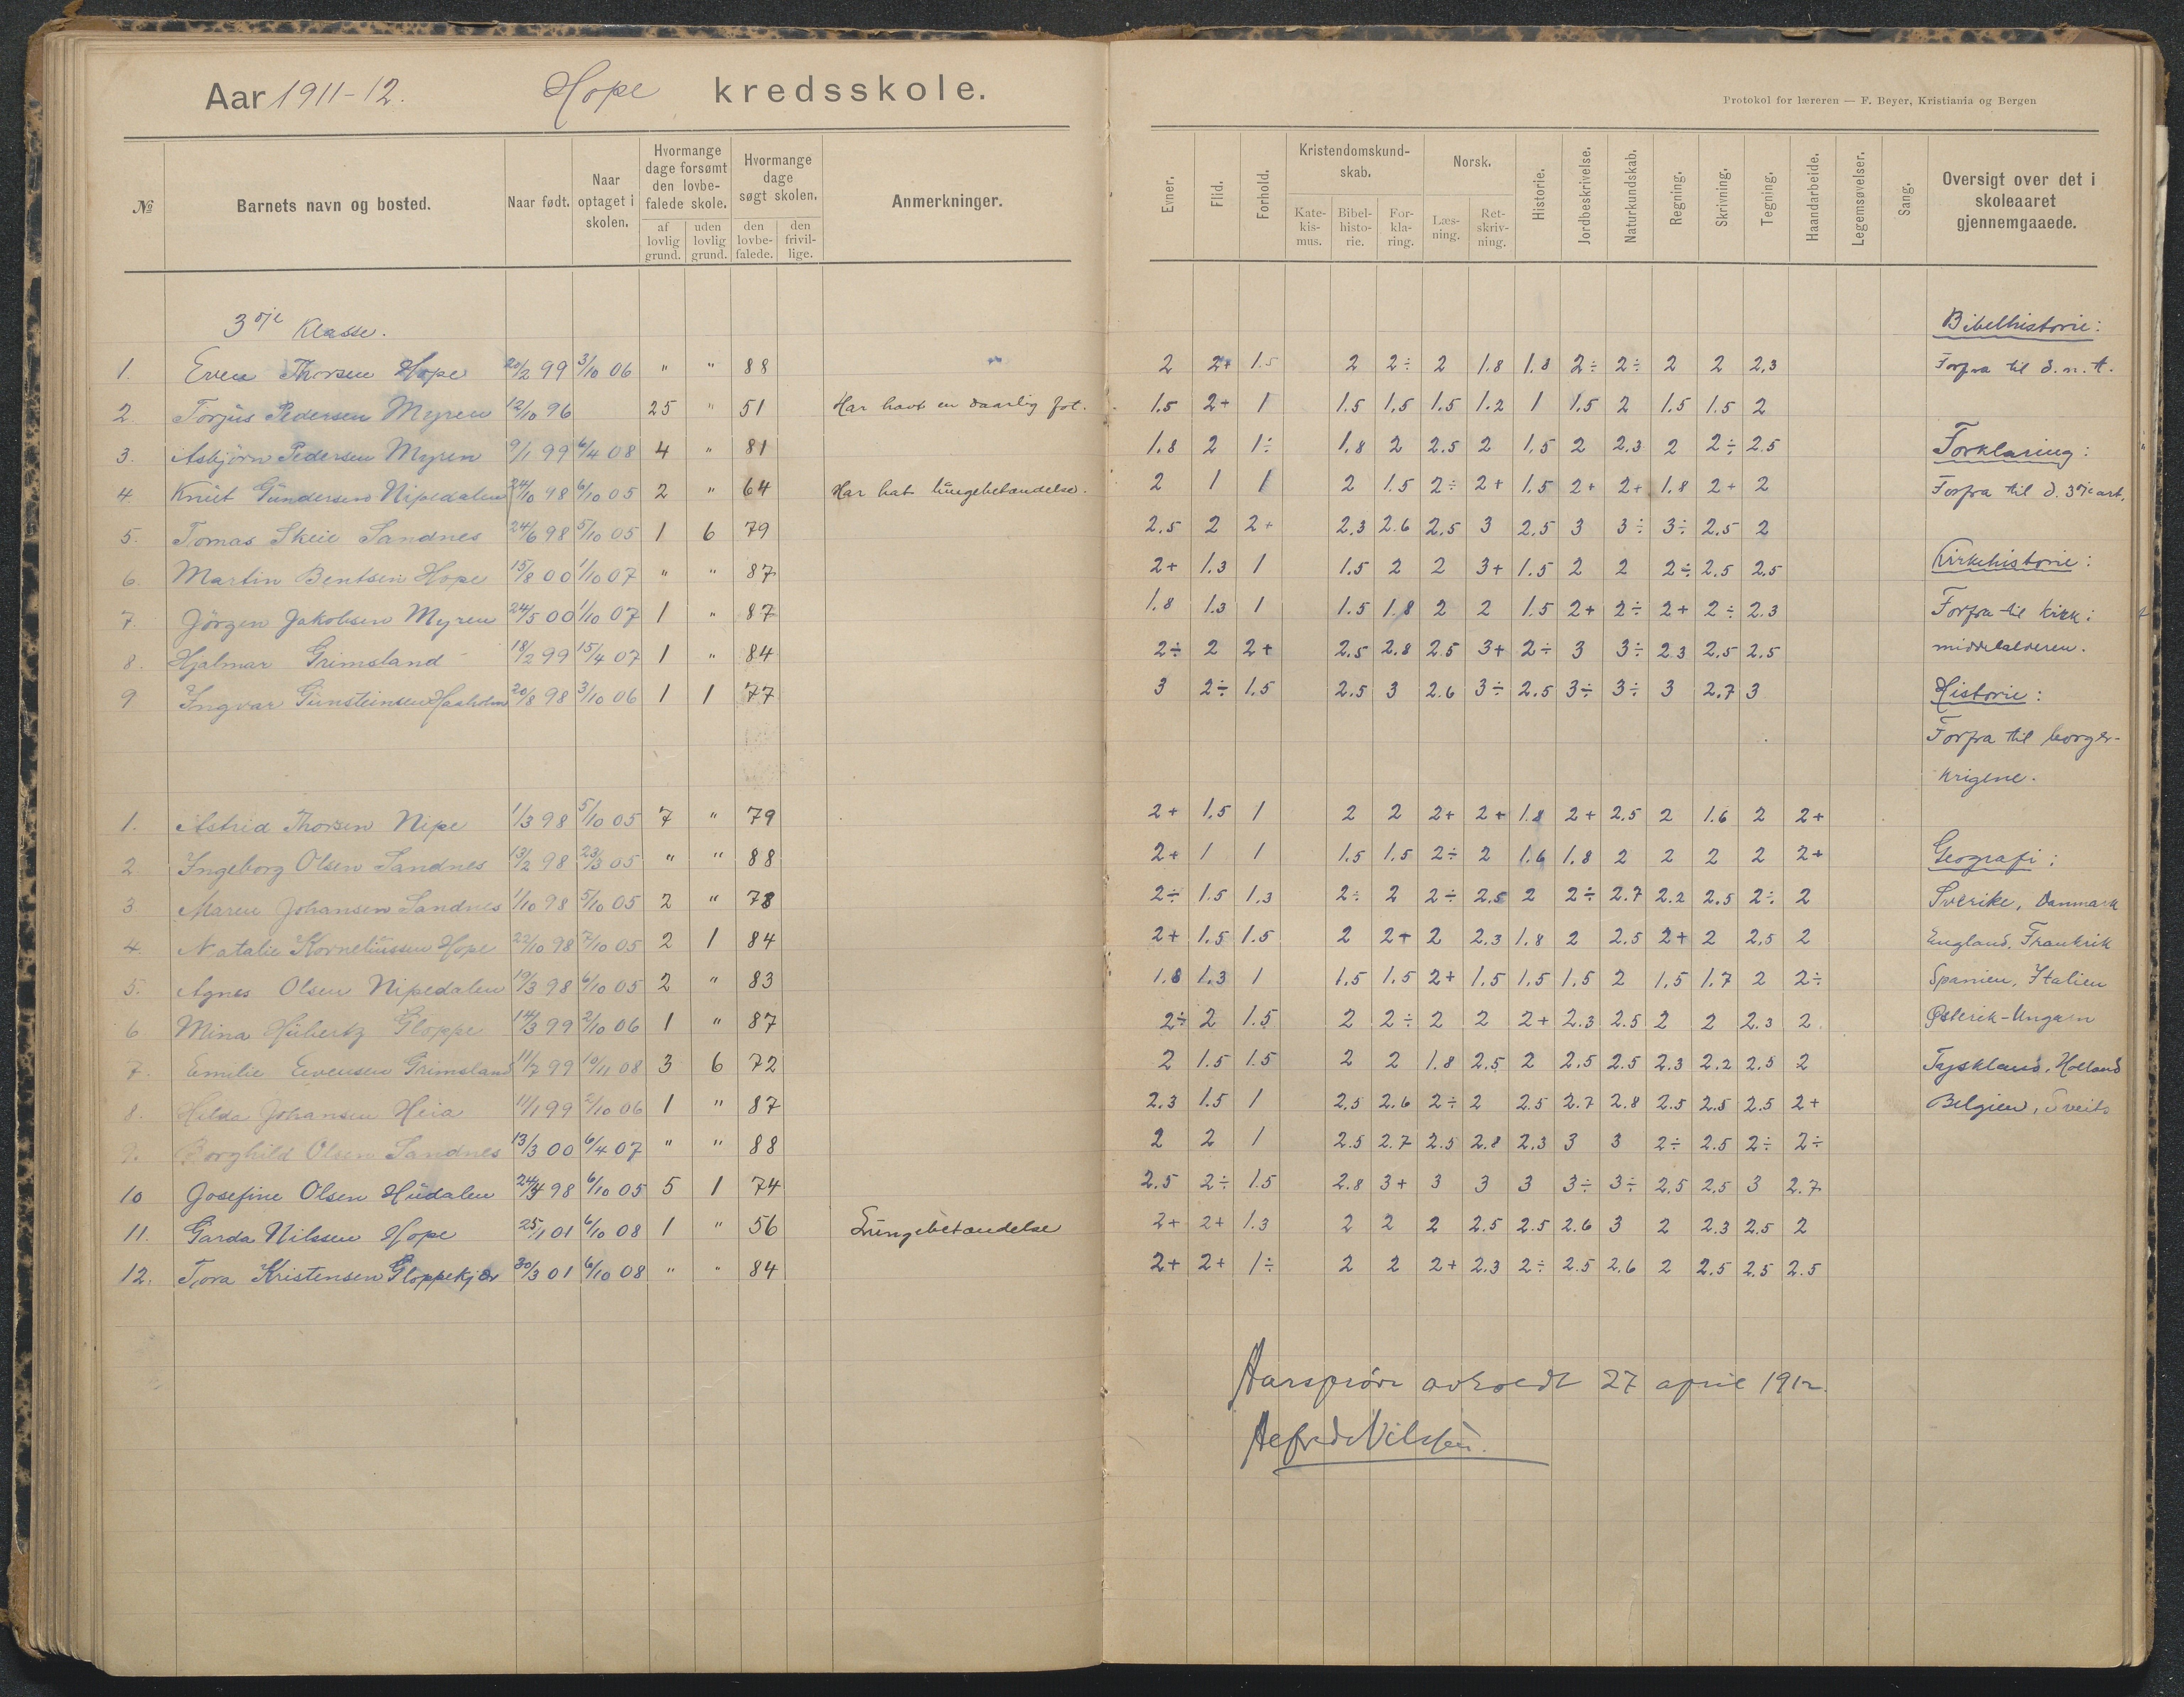 Aar 1911-12. Hope kredsskole.
Protokol for læreren — F. Beyer, Kristiania og Bergen
№ Barnets navn og bosted. Naar født. Naar optaget i skolen. Hvormange dage forsømt den lovbefalede skole. af lovlig grund. uden lovlig grund. Hvormange dage søgt skolen. den lovbefalede. den frivillige. Anmerkninger.
Evner. Flid. Forhold. Kristendomskundskab. Katekismus. Bibelhistorie. Forklaring. Norsk. Læsning. Retskrivning. Historie. Jordbeskrivelse. Naturkundskab. Regning. Skrivning. Tegning. Haandarbeide. Legemsøvelser. Sang. Oversigt over det i skoleaaret gjennemgaaede.
3dje Klasse.
1. Even Thorsen Hope 20/2 99 3/10 06 " " 88
2. Torjus Pedersen Myren 12/10 96 25 " 51 Har havt en daarlig fot.
3. Asbjørn Pedersen Myren 9/1 99 6/4 08 4 " 81
4 Knut Gundersen Nipedalen 24/10 98 6/10 05 2 " 64 Har hat lungebetændelse.
5. Tomas Skeie Sandnes 24/6 98 5/10 05 1 6 79
6. Martin Bentsen Hope 15/8 00 1/10 07 " " 87
7. Jörgen Jakobsen Myren 24/5 00 1/10 07 1 " 87
8. Hjalmar Grimsland 18/2 99 15/4 07 1 " 84
9 Ingvar Gunsteinsen Haaholm 20/8 98 3/10 06 1 1 77
1. Astrid Thorsen Nipe 1/3 98 5/10 05 7 " 79
2 Ingeborg Olsen Sandnes 13/2 98 23/3 05 " " 88
3 Maren Johansen Sandnes 1/10 98 5/10 05 2 " 78
4. Natalie Korneliussen Hope 22/10 98 7/10 05 2 1 84
5. Agnes Olsen Nipedalen 19/3 98 6/10 05 2 " 83
6 Mina Hubertz Gloppe 14/3 99 2/10 06 1 " 87
7. Emilie Evensen Grimsland 11/7 99 10/11 08 3 6 72
8. Hilda Johansen Heia 11/1 99 2/10 06 1 " 87
9. Borghild Olsen Sandnes 13/3 00 6/4 07 " " 88
10 Josefine Olsen Hudalen 24/4 98 6/10 05 5 1 74
11. Garda Nilssen Hope 25/1 01 6/10 08 1 " 56 Lungebetændelse
12. Tora Kristensen Gloppekjær 30/3 01 6/10 08 " " 84
Bibelhistorie:
2 2+ 1.5 2 2÷ 2 1.8 1.8 2÷ 2÷ 2 2 2.3 Forfra til d. n. t.
1.5 2+ 1 1.5 1.5 1.5 1.2 1 1.5 2 1.5 1.5 2
1.8 2 1÷ 1.8 2 2.5 2 1.5 2 2.3 2 2÷ 2.5 Forklaring:
2 1 1 2 1.5 2÷ 2+ 1.5 2+ 2+ 1.8 2+ 2 Forfra til d. 3dje art.
2.5 2 2+ 2.3 2.6 2.5 3 2.5 3 3÷ 3÷ 2.5 2
2+ 1.3 1 1.5 2 2 3+ 1.5 2 2 2÷ 2.5 2.5 Kirkehistorie:
1.8 1.3 1 1.5 1.8 2 2 1.5 2+ 2÷ 2+ 2÷ 2.3 Forfra til kirk. i
2÷ 2 2+ 2.5 2.8 2.5 3+ 2÷ 3 3÷ 2.3 2.5 2.5 middelalderen.
3 2÷ 1.5 2.5 3 2.6 3÷ 2.5 3÷ 3÷ 3 2.7 3 Historie:
Forfra til borger-
krigene.
2+ 1.5 1 2 2 2+ 2+ 1.8 2+ 2.5 2 1.6 2 2+
2+ 1 1 1.5 1.5 2÷ 2 1.6 1.8 2 2 2 2 2+ Geografi:
2÷ 1.5 1.3 2÷ 2 2÷ 2.5 2 2÷ 2.7 2.2 2.5 2÷ 2 Sverike, Danmark
2+ 1.5 1.5 2 2+ 2 2.3 1.8 2 2.5 2+ 2 2.5 2 England, Frankrik
1.8 1.3 1 1.5 1.5 2+ 1.5 1.5 1.5 2 1.5 1.7 2 2÷ Spanien, Italien
2÷ 2 1.5 2 2÷ 2 2 2+ 2.3 2.5 2 2 2.3 2 Østerik-Ungarn
2 1.5 1.5 2 2 1.8 2.5 2 2.5 2.5 2.3 2.2 2.5 2 Tyskland, Holland
2.3 1.5 1 2.5 2.6 2÷ 2 2.5 2.7 2.8 2.5 2.5 2.5 2+ Belgien, Sveits
2 2 1 2.5 2.7 2.5 2.8 2.3 3 3 2÷ 2.5 2÷ 2÷
2.5 2÷ 1.5 2.8 3+ 3 3 3 3÷ 3÷ 2.5 2.5 3 2.7
2+ 2+ 1.3 2 2 2 2.5 2.5 2.6 3 2 2.3 2.5 2
2+ 2+ 1÷ 2 2 2+ 2.3 2÷ 2.5 2.6 2 2.5 2.5 2.5
Aarsprøve avholdt 27 april 1912.
Alfred Nilssen.